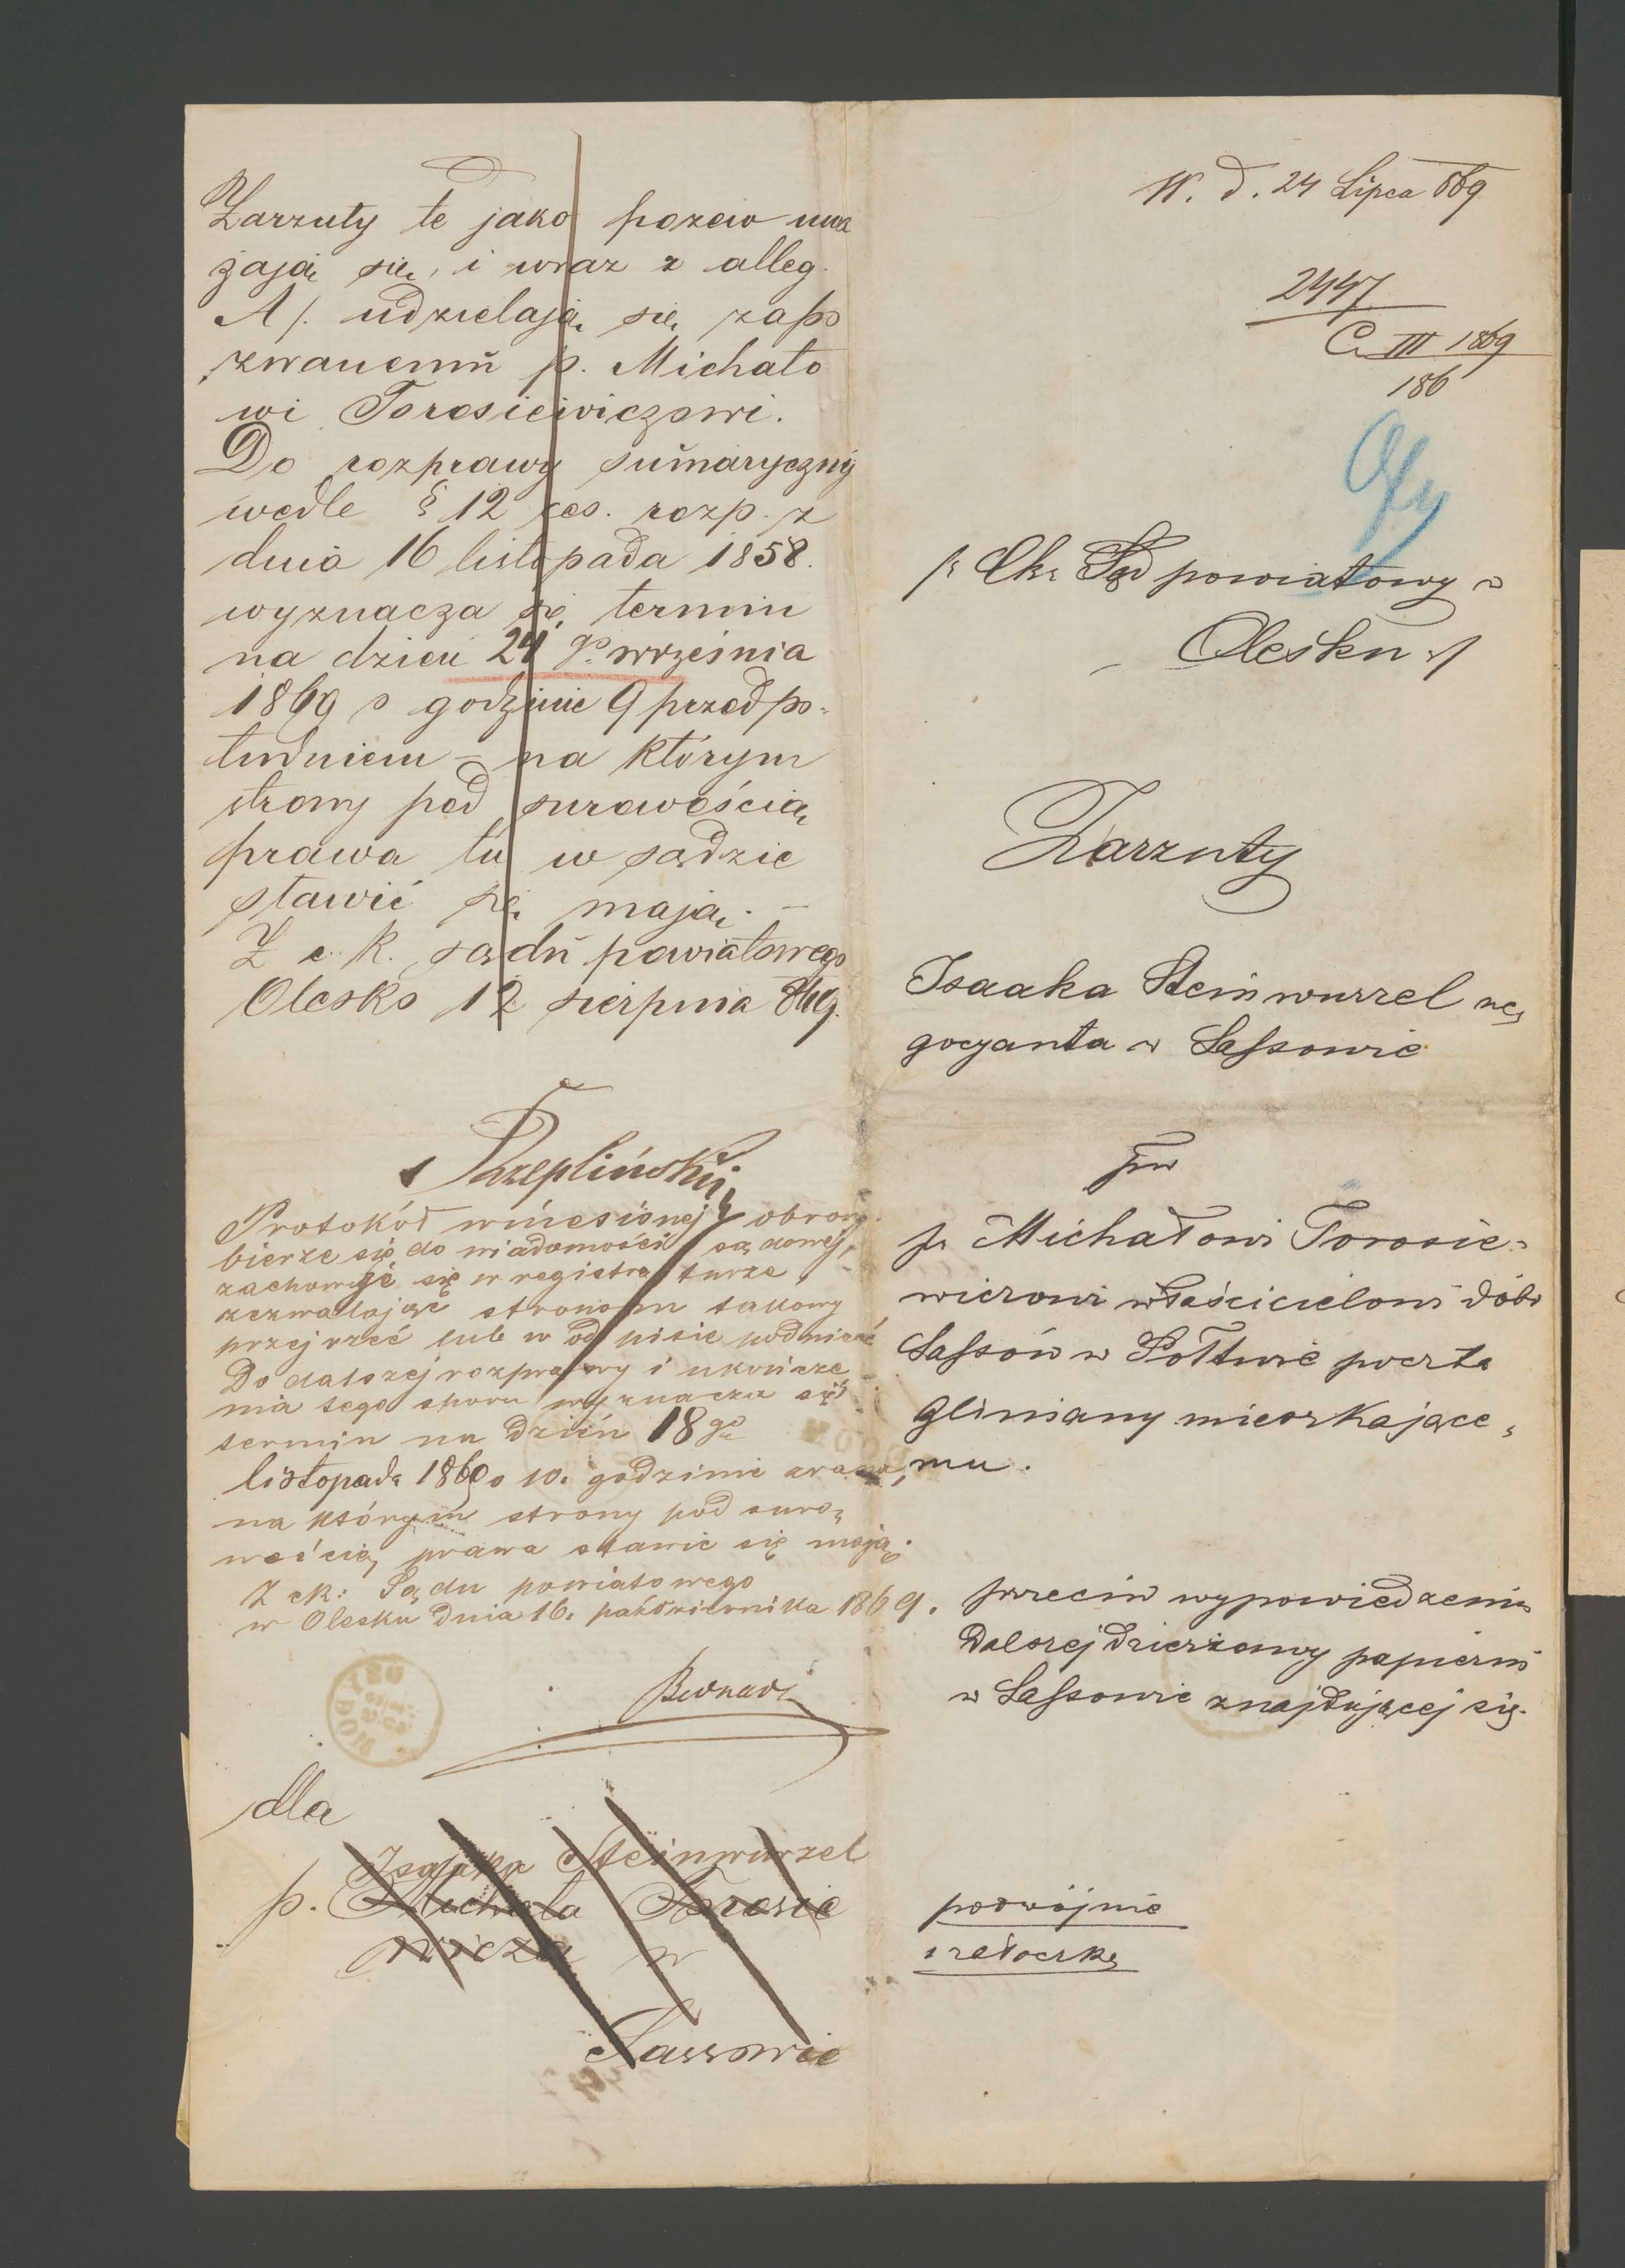 Zarzuty te jako pozew uwa
żają się, i wraz z alleg.
A /. udzielają się zapo
zwanemu p. Michało
wi Torosiewiczowi.
Do rozprawy sumaryczny
wedle § 12 ces. rozp. z
dnia 16 listopada 1858.
wyznacza się termin
na dzień 24 go września
1869 o godzinie 9 przedpo-
łudniem – na którym
strony pod surowością
prawa tu w sądzie
stawić się mają. –
Z c. k. sądu powiatowego
Olesko 12 sierpnia 869.
Protokół wniesionej obrony
bierze się do wiadomości sądowej,
zachowuje się w registraturze
zezwalając stronom takowy
przejrzeć lub w odpisie podnieść
Do dalszej rozprawy i ukończe
nia tego sporu wyznacza się
termin na dzień 18 go
listopada 1869 o 10. godzinie zrana,
na którym strony pod suro-
wością prawa stawić się mają.
Z ck: Sądu powiatowego
w Olesku dnia 16. października 1869.
dla
Izaaka Steinwurzel
p. Michała Torosie
wicza w
Sassowie
W. d. 24 Lipca 869
2447
C. III 1869
186
Ck. Sąd powiatowy w
Olesku
Zarzuty
Isaaka Steinwurzel ne-
gocyanta w Sassowie
pw
p. Michałowi Torosie-
wiczowi właścicielowi dóbr
Sassów w Połtwie poczta
Gliniany mieszkające-
mu.
przeciw wypowiedzeniu
dalszej dzierżawy papierni
w Sassowie znajdującej się.
podwójnie